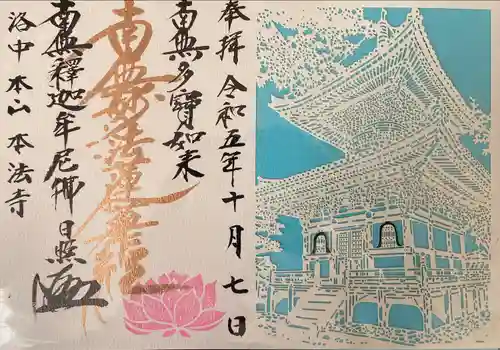 奉拝 令和五年十月七日
南無多寶如来
南無妙法蓮華経
南無釋迦牟尼佛 日照
洛中 本山 本法寺